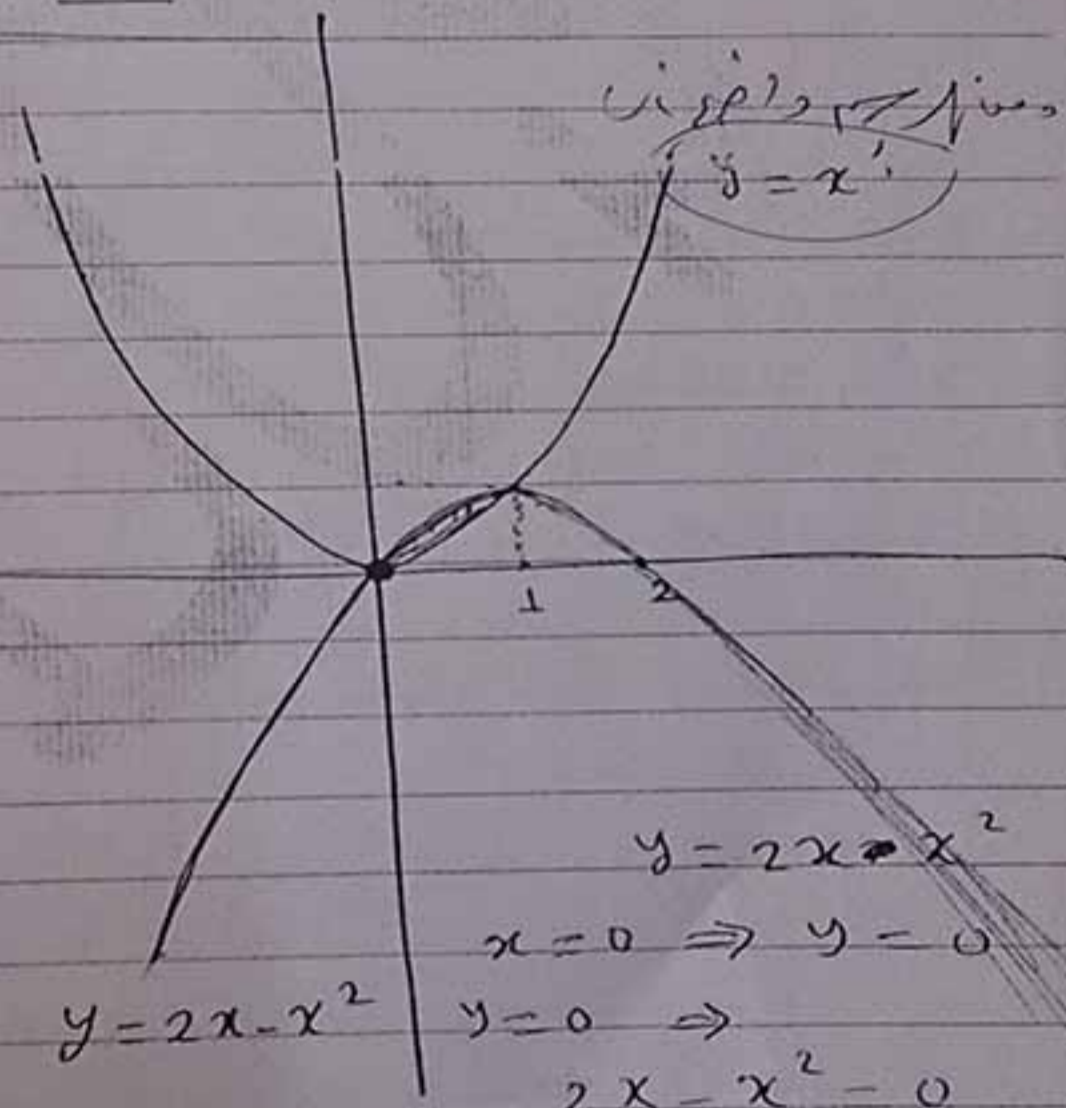 y = x²
1
2
y = 2x - x²
x = 0 ⇒ y = 0
y = 2x - x²
y = 0 ⇒
2x - x² = 0